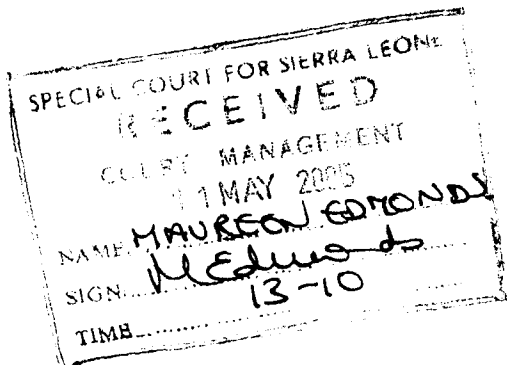 SPECIAL COURT FOR SIERRA LEONE
RECEIVED
COURT MANAGEMENT
11 MAY 2005
NAME MAUREEN EDMONDS
SIGN MEdmonds
TIME 13-10